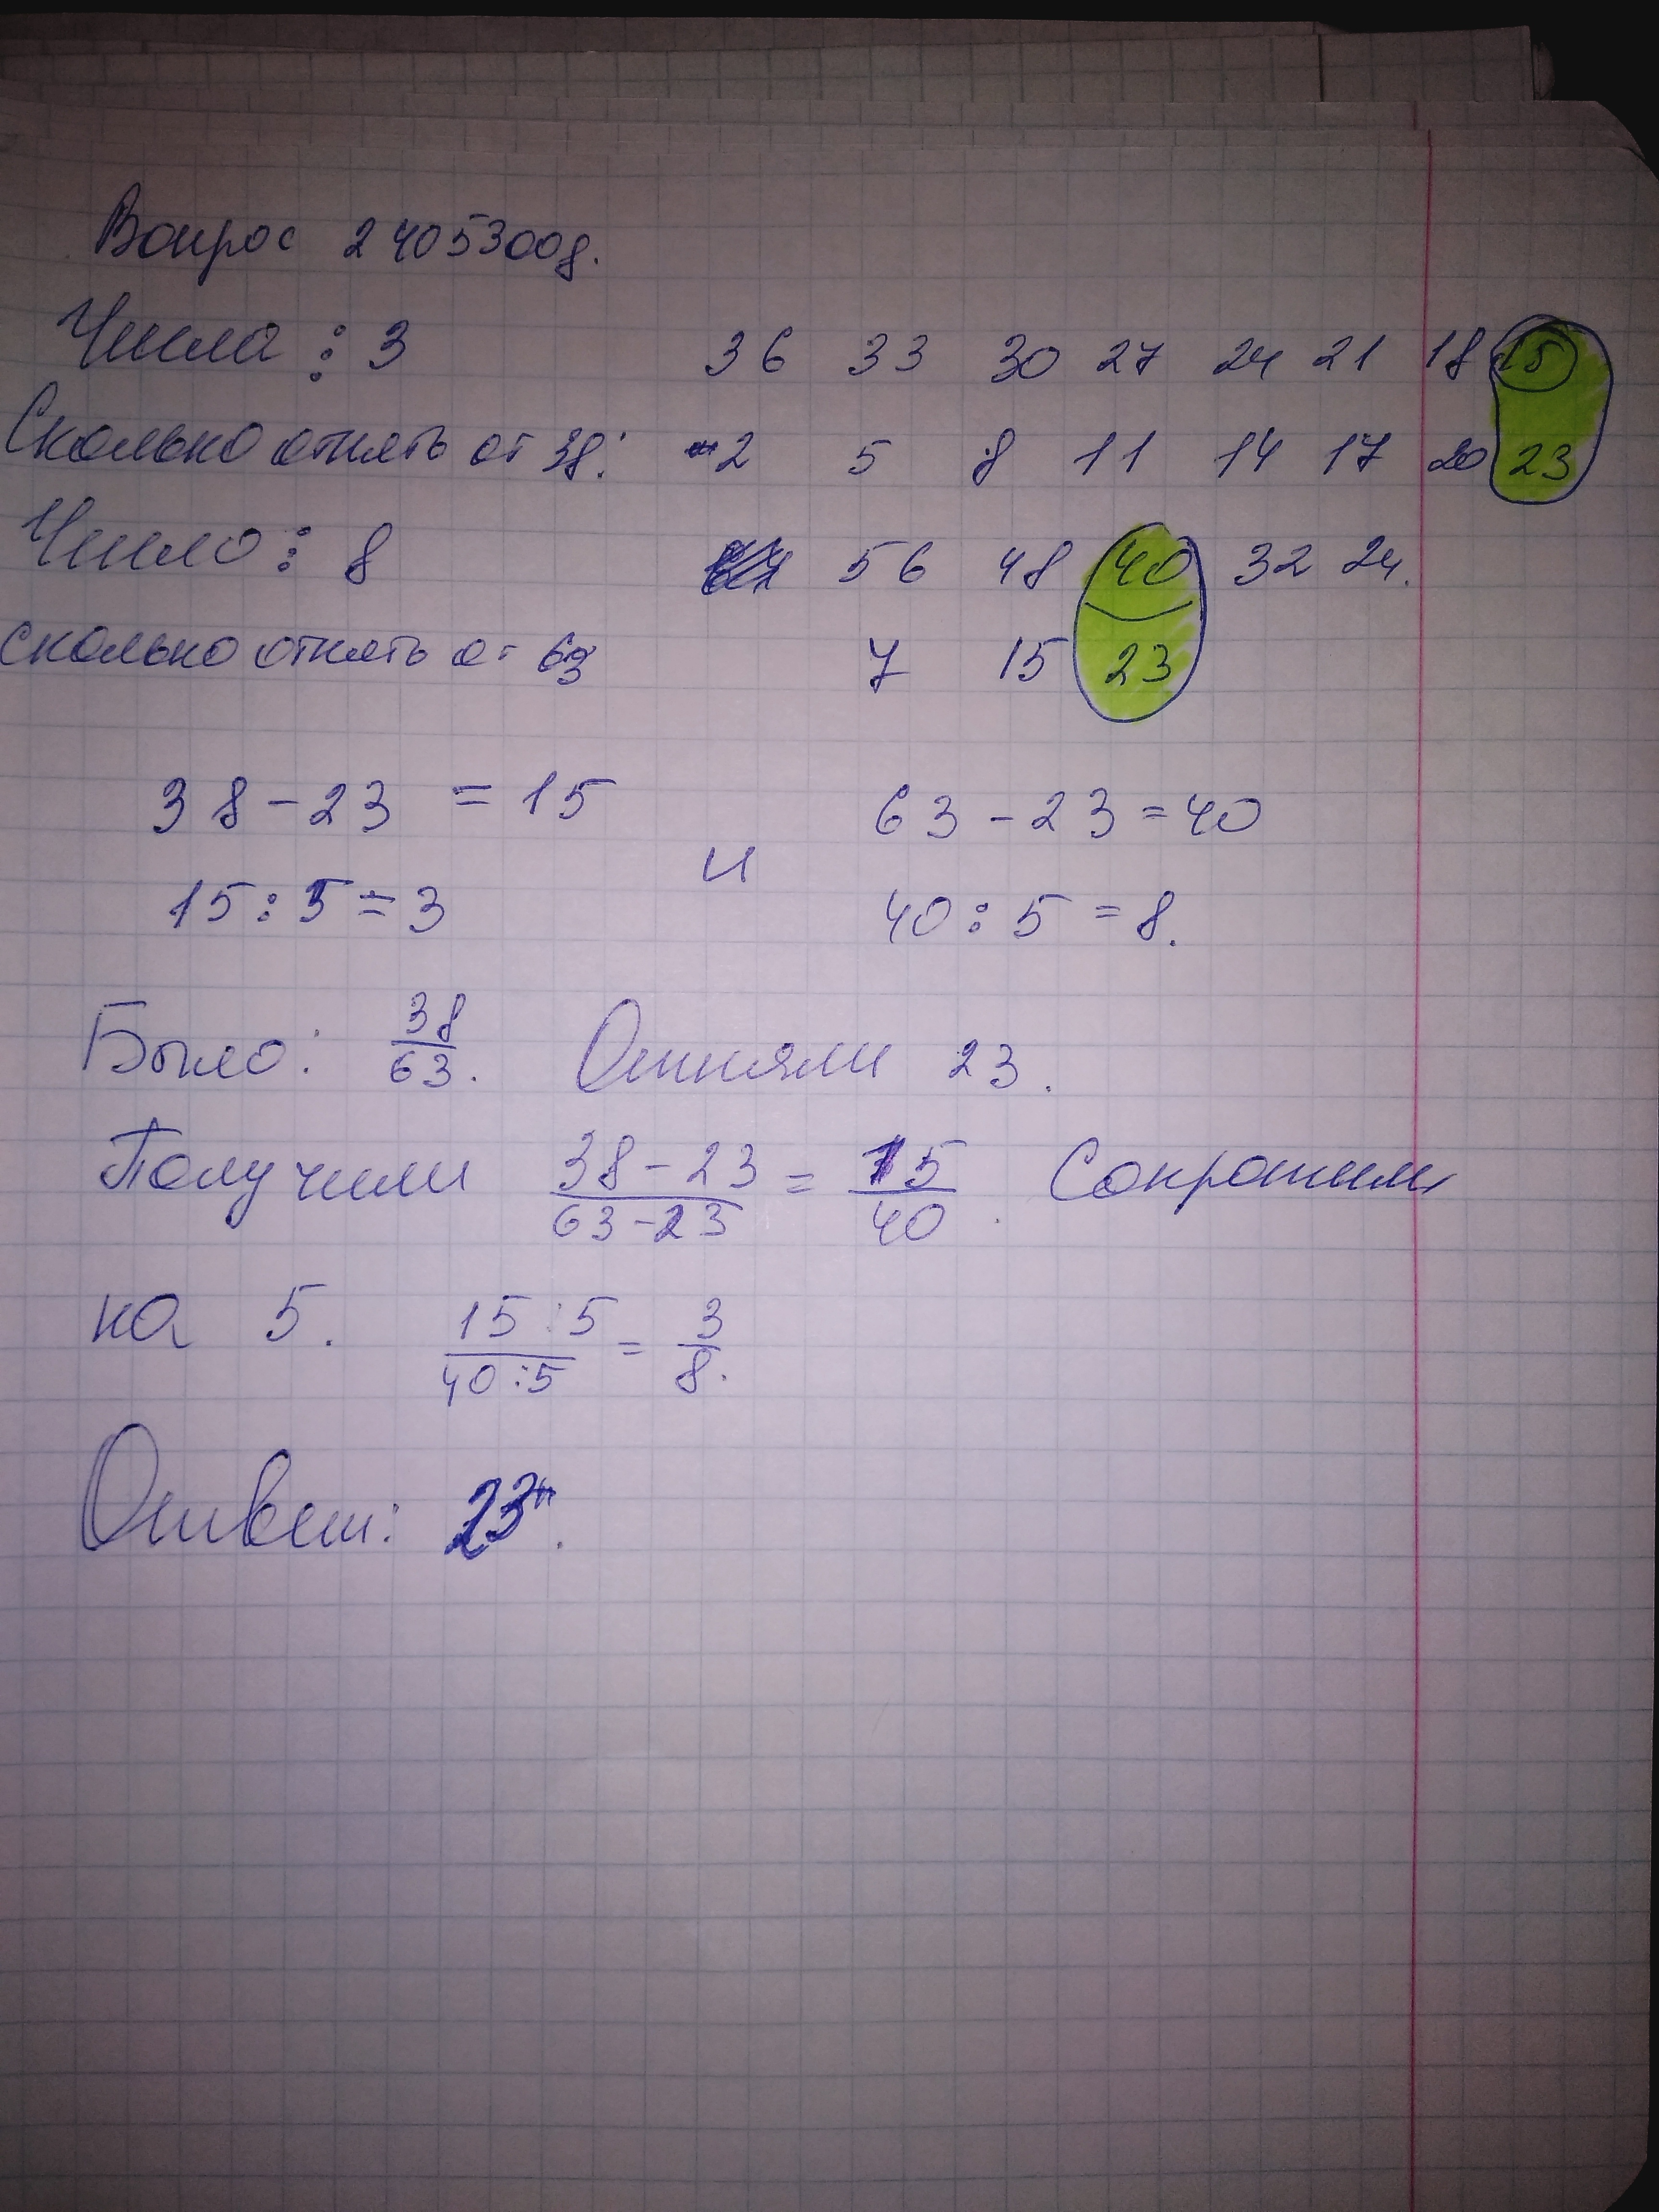 Вопрос 24053008.
Числа ⋮ 3 36 33 30 27 24 21 18 15
Сколько отнять от 38: 2 5 8 11 14 17 20 23
Число ⋮ 8 56 48 40 32 24.
сколько отнять от 63 7 15 23
38 - 23 = 15 и 63 - 23 = 40
15 : 5 = 3 40 : 5 = 8.
Было: 38/63. Отняли 23.
Получили (38 - 23)/(63 - 23) = 15/40. Сократим
на 5. (15 : 5)/(40 : 5) = 3/8.
Ответ: 23.